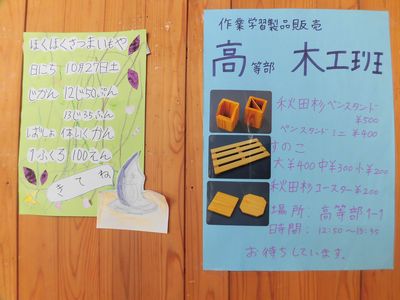 ほくほくさつまいもや
日にち 10月27日土
じかん 12じ50ぷん
13じ35ふん
ばしょ 体いくかん
1ふくろ 100えん
きてね
作業学習製品販売
高等部 木工班
秋田杉ペンスタンド
¥500
ペンスタンドミニ ¥400
すのこ
大¥400中¥300小¥200
秋田杉コースター¥200
場所：高等部1-1
時間：12:50～13:35
お待ちしています。